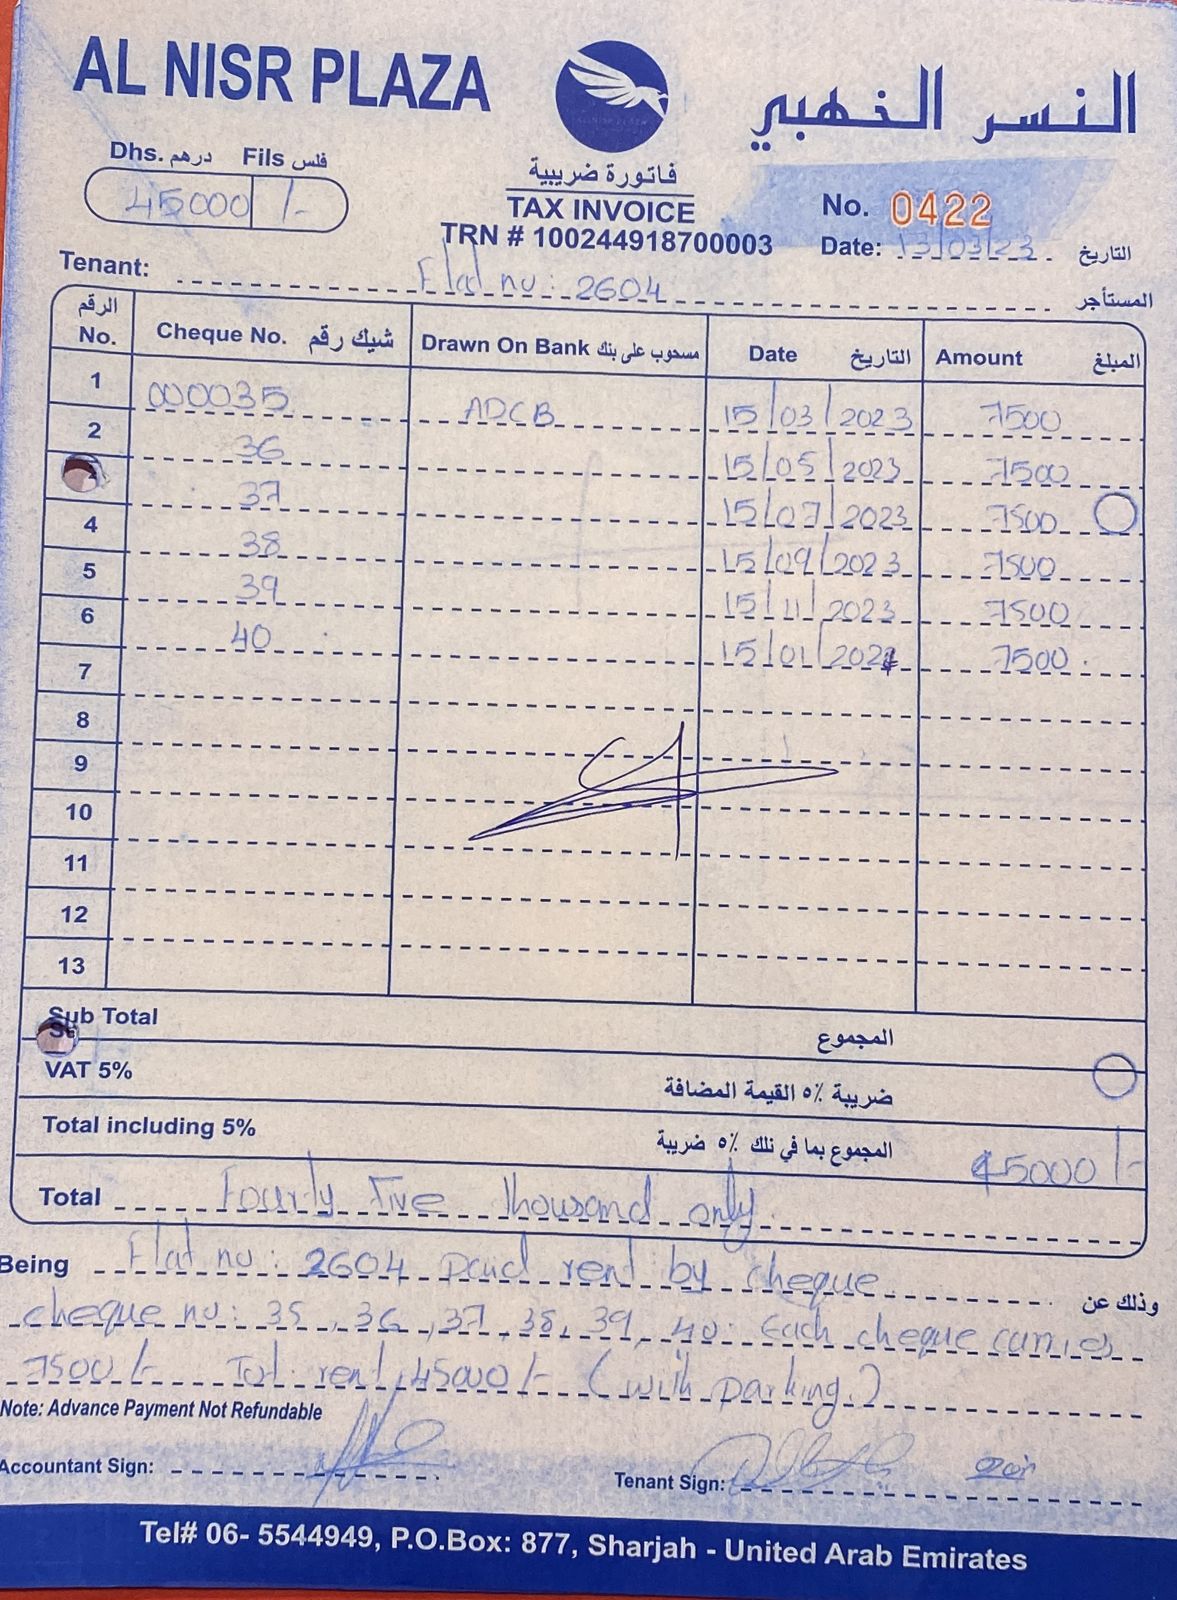 AL NISR PLAZA
النسر الذهبي
Dhs. درهم Fils فلس
45000 /-
فاتورة ضريبية
TAX INVOICE
TRN # 100244918700003
No. 0422
Date: 13/03/23 التاريخ
Tenant: Flat no: 2604 المستأجر
الرقم No. Cheque No. شيك رقم Drawn On Bank مسحوب على بنك Date التاريخ Amount المبلغ
1 000035 ADCB 15/03/2023 7500
2 36 15/05/2023 7500
37 15/07/2023 7500
4 38 15/09/2023 7500
5 39 15/11/2023 7500
6 40 15/01/2024 7500
7
8
9
10
11
12
13
Sub Total المجموع
VAT 5% ضريبة ٥٪ القيمة المضافة
Total including 5% المجموع بما في ذلك ٥٪ ضريبة 45000/-
Total Fourty Five thousand only
Being Flat no: 2604 paid rent by cheque وذلك عن
cheque no: 35, 36, 37, 38, 39, 40. Each cheque carries
7500/- Tot. rent 45000/- (with parking.)
Note: Advance Payment Not Refundable
Accountant Sign:
Tenant Sign:
Tel# 06- 5544949, P.O.Box: 877, Sharjah - United Arab Emirates